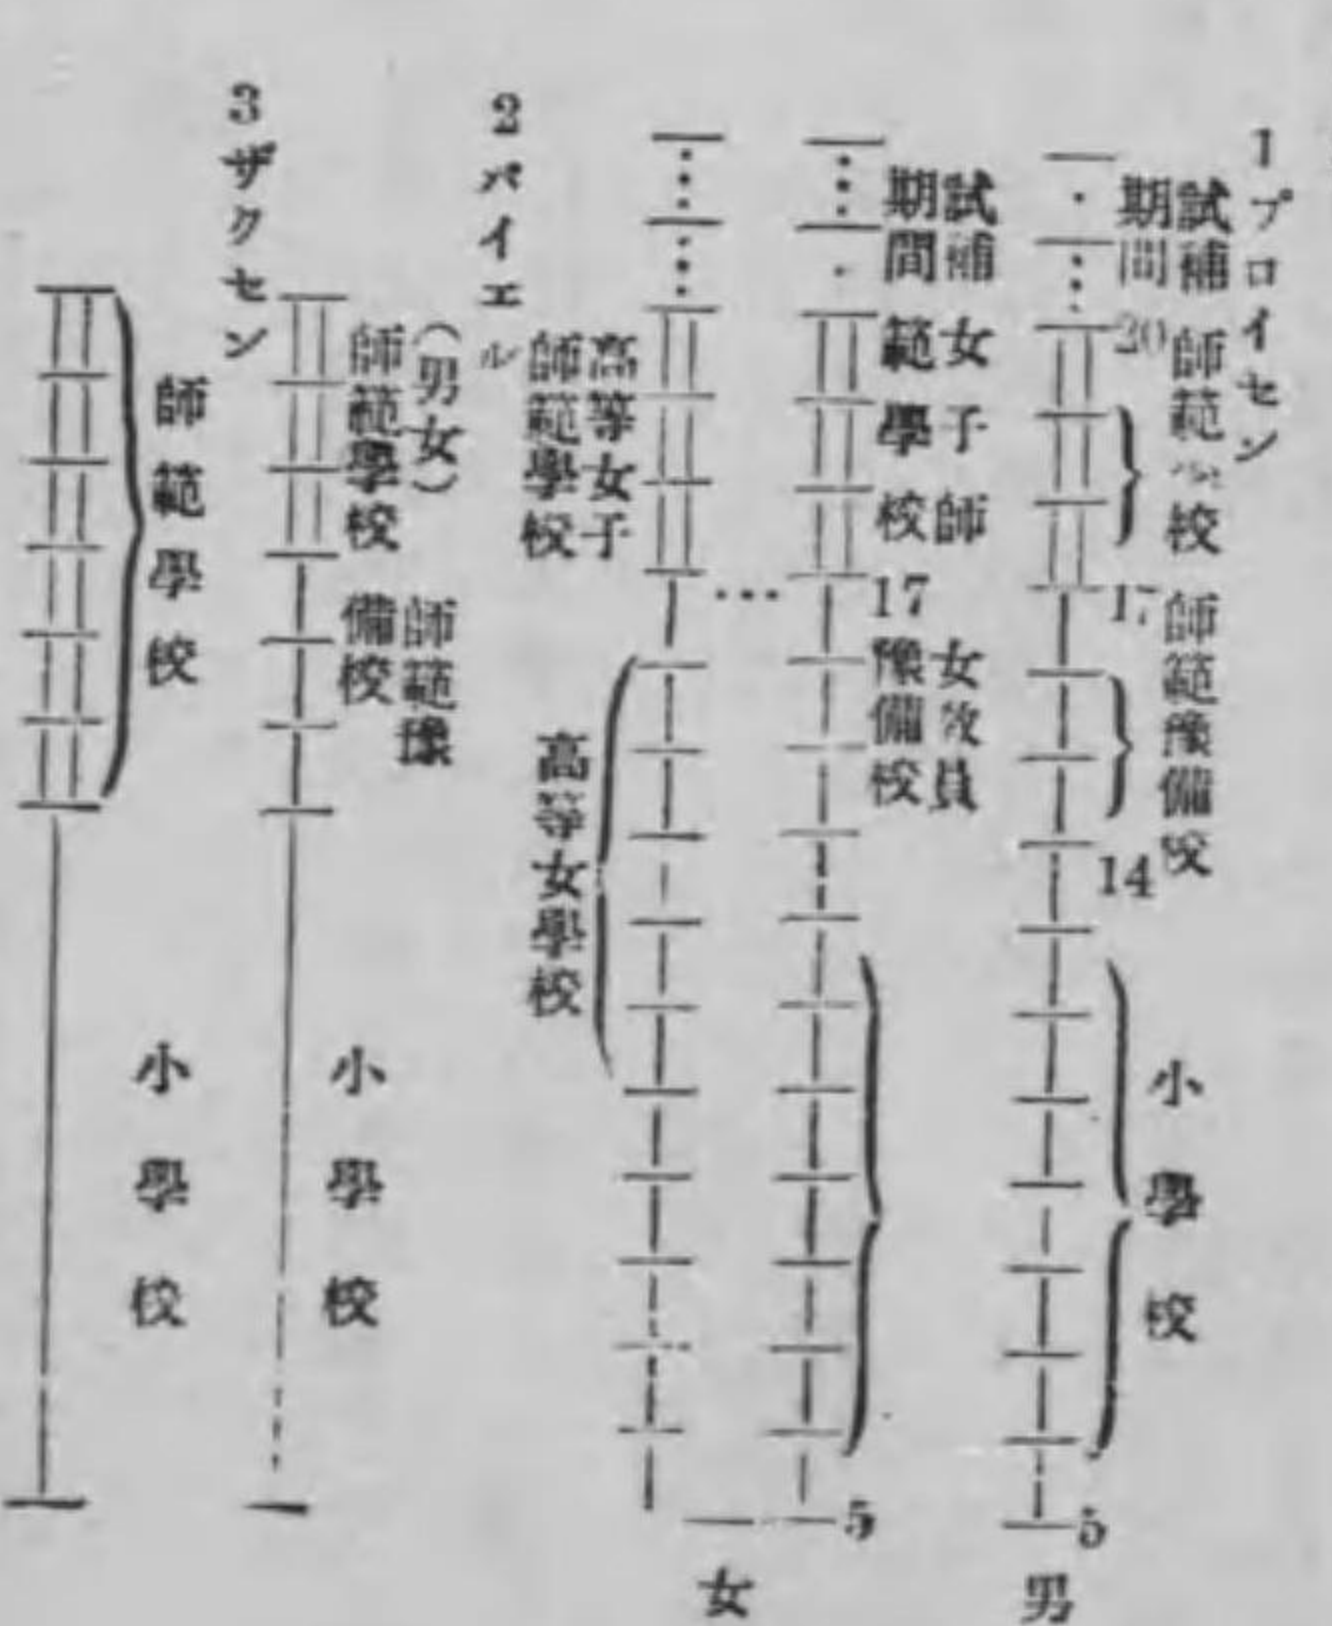 1プロイセン
試補
期間
20
師範學校
17
師範豫備校
14
小學校
5
男
試補
期間
女子師
範學校
17
女教員
豫備校
5
女
高等女子
師範學校
高等女學校
2バイエル
(男女)
師範學校
師範豫
備校
小學校
3ザクセン
師範學校
小學校